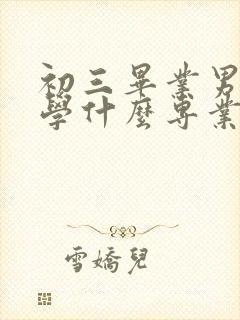 初三畢業男
學什麼專業
雪嬌兒